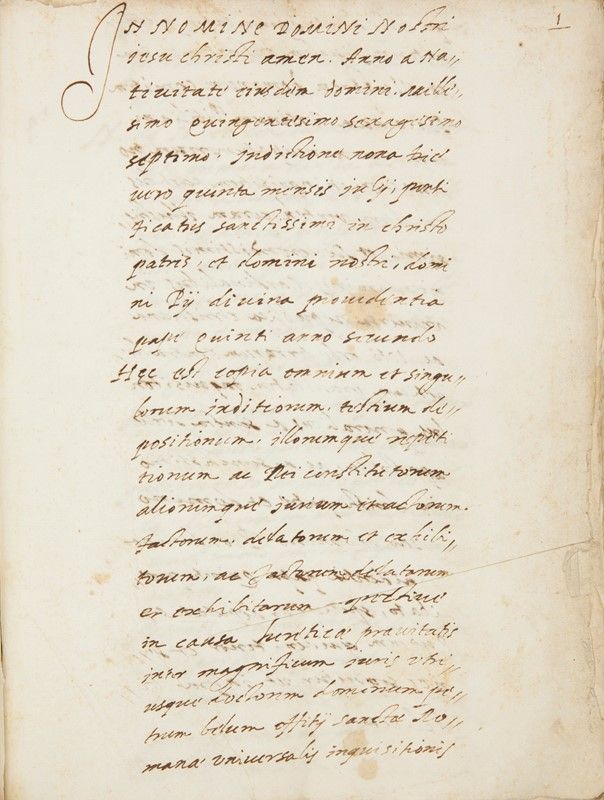 1
IN NOMINE DOMINI Nostri
iesu christi amen. Anno a Na„
tiuitate eiusdem domini. Mille„
simo quingentesimo sexagesimo
septimo. indictione nona die
uero quinta mensis julij, ponti
ficatus sanctissimi in christo
patris, et domini nostri, domi
ni Pij diuina prouidentia
pape quinti anno secundo
Hec est copia omnium et singu„
lorum inditiorum. testium de„
positionum. illorumque repeti
tionum ac Rei constitutorum
aliorumque iurium et actorum.
factorum. delatorum et exhibi„
torum, ac factorum delatarum
et exhibitarum
in causa heretice prauitatis
inter magnificum iuris vtri„
usque doctorem dominum pe„
trum belum offitij sancte Ro„
mane vniuersalis inquisitionis